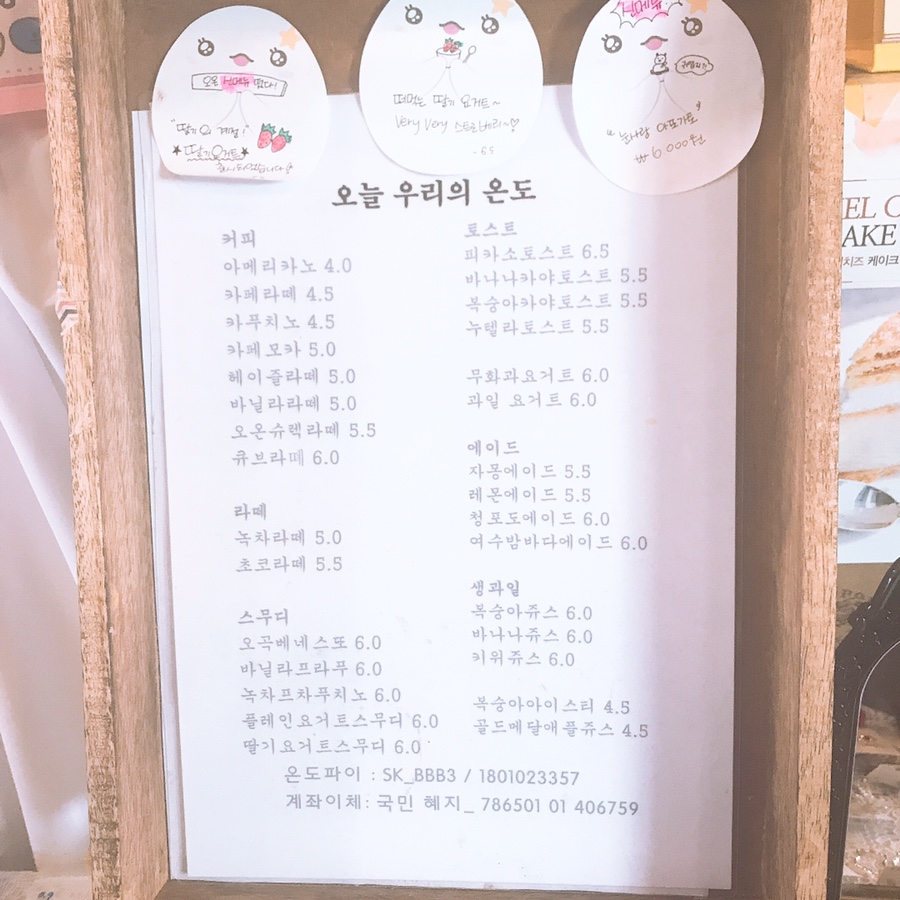 오온 신메뉴 떴다!
"딸기의 계절!"
★딸기요거트★
떠먹는 딸기 요거트~
Very Very 스트로베리~♡
-6.5
신메뉴
귀엽지?!
"눈사람 아포가토"
₩ 6.000원
오늘 우리의 온도
커피
아메리카노 4.0
카페라떼 4.5
카푸치노 4.5
카페모카 5.0
헤이즐라떼 5.0
바닐라라떼 5.0
오온슈렉라떼 5.5
큐브라떼 6.0
라떼
녹차라떼 5.0
초코라떼 5.5
스무디
오곡베네스또 6.0
바닐라프라푸 6.0
녹차프차푸치노 6.0
플레인요거트스무디 6.0
딸기요거트스무디 6.0
토스트
피카소토스트 6.5
바나나카야토스트 5.5
복숭아카야토스트 5.5
누텔라토스트 5.5
무화과요거트 6.0
과일 요거트 6.0
에이드
자몽에이드 5.5
레몬에이드 5.5
청포도에이드 6.0
여수밤바다에이드 6.0
생과일
복숭아쥬스 6.0
바나나쥬스 6.0
키위쥬스 6.0
복숭아아이스티 4.5
골드메달애플쥬스 4.5
온도파이 : SK_BBB3 / 1801023357
계좌이체: 국민 혜지_ 786501 01 406759
EL C
AKE
치즈 케이크